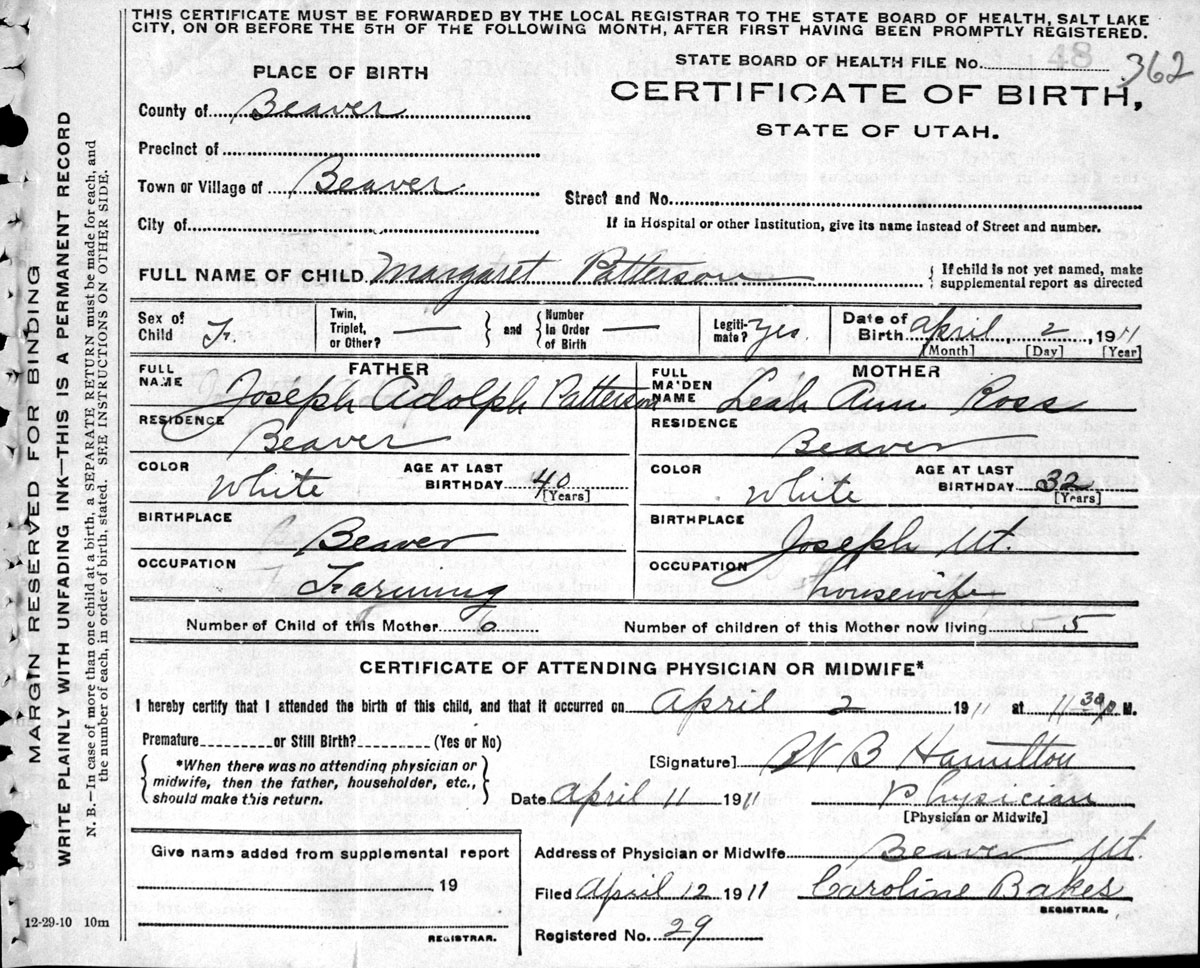 THIS CERTIFICATE MUST BE FORWARDED BY THE LOCAL REGISTRAR TO THE STATE BOARD OF HEALTH, SALT LAKE
CITY, ON OR BEFORE THE 5TH OF THE FOLLOWING MONTH, AFTER FIRST HAVING BEEN PROMPTLY REGISTERED.
MARGIN RESERVED FOR BINDING
WRITE PLAINLY WITH UNFADING INK—THIS IS A PERMANENT RECORD
N. B.—In case of more than one child at a birth, a SEPARATE RETURN must be made for each, and
the number of each, in order of birth, stated. SEE INSTRUCTIONS ON OTHER SIDE.
12-29-10 10m
PLACE OF BIRTH
County of Beaver
Precinct of
Town or Village of Beaver
City of
STATE BOARD OF HEALTH FILE No. 48 362
CERTIFICATE OF BIRTH,
STATE OF UTAH.
Street and No.
If in Hospital or other Institution, give its name instead of Street and number.
FULL NAME OF CHILD Margaret Patterson
If child is not yet named, make
supplemental report as directed
Sex of Child F.
Twin, Triplet, or Other? —
and
Number in Order of Birth —
Legitimate? Yes.
Date of Birth April 2, 1911
[Month] [Day] [Year]
FATHER
FULL NAME Joseph Adolph Patterson
RESIDENCE Beaver
COLOR White
AGE AT LAST BIRTHDAY 40
[Years]
BIRTHPLACE Beaver
OCCUPATION Farming
MOTHER
FULL MAIDEN NAME Leah Ann Ross
RESIDENCE Beaver
COLOR White
AGE AT LAST BIRTHDAY 32
[Years]
BIRTHPLACE Joseph Ut.
OCCUPATION Housewife
Number of Child of this Mother 6
Number of children of this Mother now living 5
CERTIFICATE OF ATTENDING PHYSICIAN OR MIDWIFE*
I hereby certify that I attended the birth of this child, and that it occurred on April 2 1911 at 11 30 P. M.
Premature or Still Birth? (Yes or No)
*When there was no attending physician or
midwife, then the father, householder, etc.,
should make this return.
[Signature] B Hamilton
Date April 11 1911 Physician
[Physician or Midwife]
Give name added from supplemental report
19
REGISTRAR.
Address of Physician or Midwife Beaver Ut.
Filed April 12 1911 Caroline Bakes
REGISTRAR.
Registered No. 29